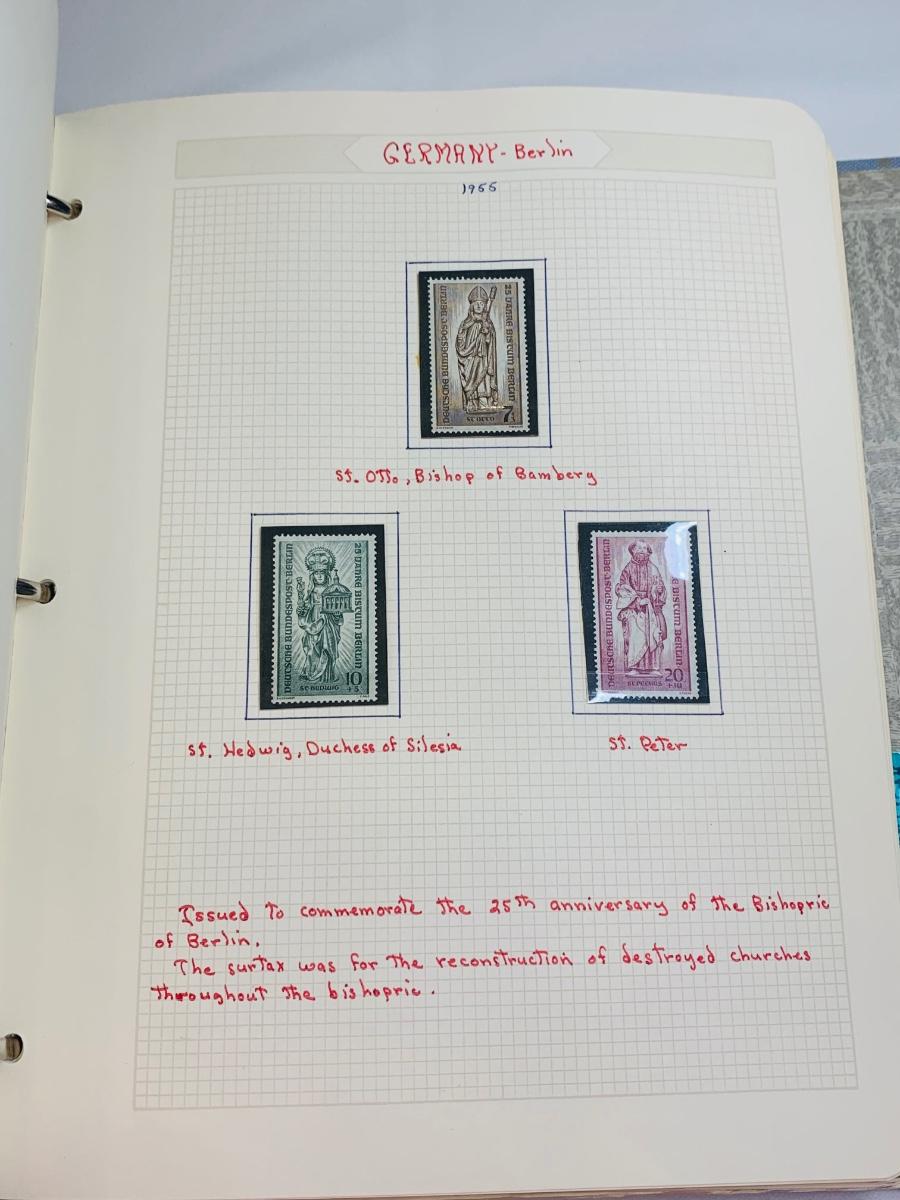 GERMANY - Berlin
1955
DEUTSCHE BUNDESPOST BERLIN
25 JAHRE BISTUM BERLIN
ST. OTTO
7
St. Otto, Bishop of Bamberg
DEUTSCHE BUNDESPOST BERLIN
25 JAHRE BISTUM BERLIN
ST. HEDWIG
10
+5
DEUTSCHE BUNDESPOST BERLIN
BISTUM BERLIN
ST. PETRUS
20
+10
St. Hedwig, Duchess of Silesia
St. Peter
Issued to commemorate the 25th anniversary of the Bishopric
of Berlin.
The surtax was for the reconstruction of destroyed churches
throughout the bishopric.